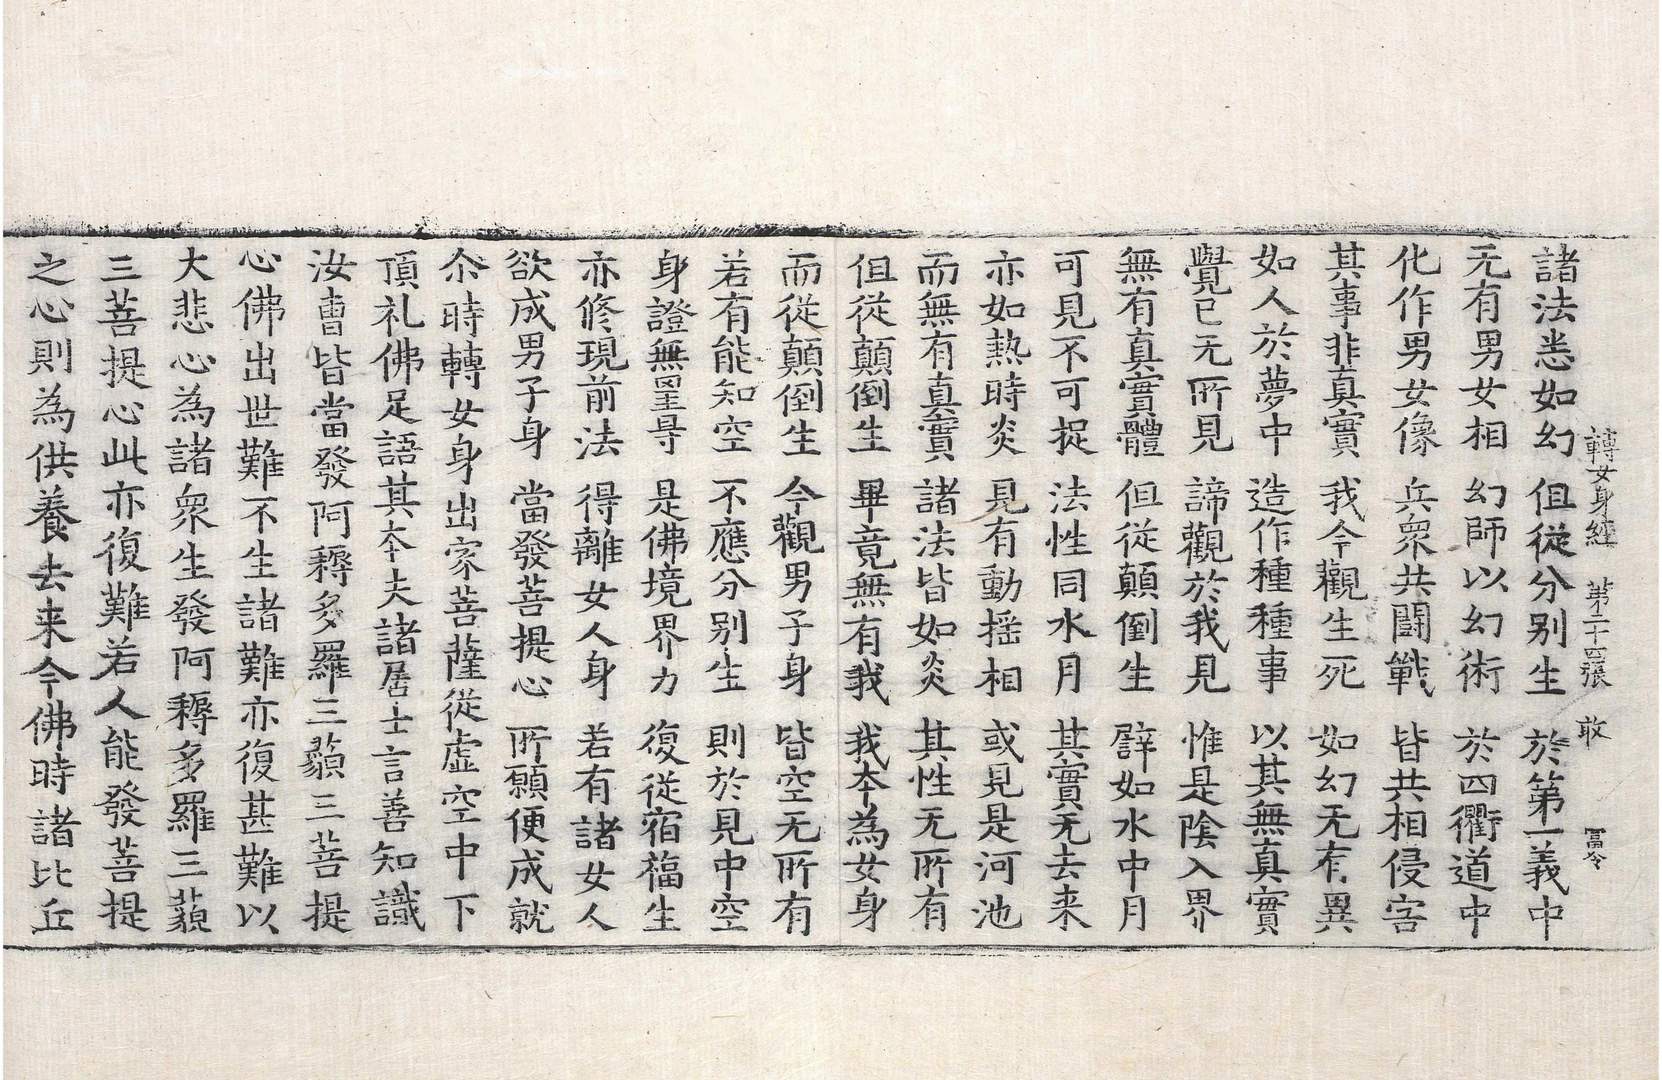 轉女身經 第二十四張 敢 冨令
諸法悉如幻 但從分別生 於第一義中
无有男女相 幻師以幻術 於四衢道中
化作男女像 兵衆共鬪戰 皆共相侵害
其事非真實 我今觀生死 如幻无有異
如人於夢中 造作種種事 以其無真實
覺已无所見 諦觀於我見 惟是陰入界
無有真實體 但從顛倒生 譬如水中月
可見不可捉 法性同水月 其實无去来
亦如熱時炎 見有動搖相 或見是河池
而無有真實 諸法皆如炎 其性无所有
但從顛倒生 畢竟無有我 我本為女身
而從顛倒生 今觀男子身 皆空无所有
若有能知空 不應分別生 則於見中空
身證無罣㝵 是佛境界力 復從宿福生
亦修現前法 得離女人身 若有諸女人
欲成男子身 當發菩提心 所願便成就
尒時轉女身出家菩薩從虛空中下
頂礼佛足語其本夫諸居士言善知識
汝曹皆當發阿耨多羅三藐三菩提
心佛出世難不生諸難亦復甚難以
大悲心為諸衆生發阿耨多羅三藐
三菩提心此亦復難若人能發菩提
之心則為供養去来今佛時諸比丘